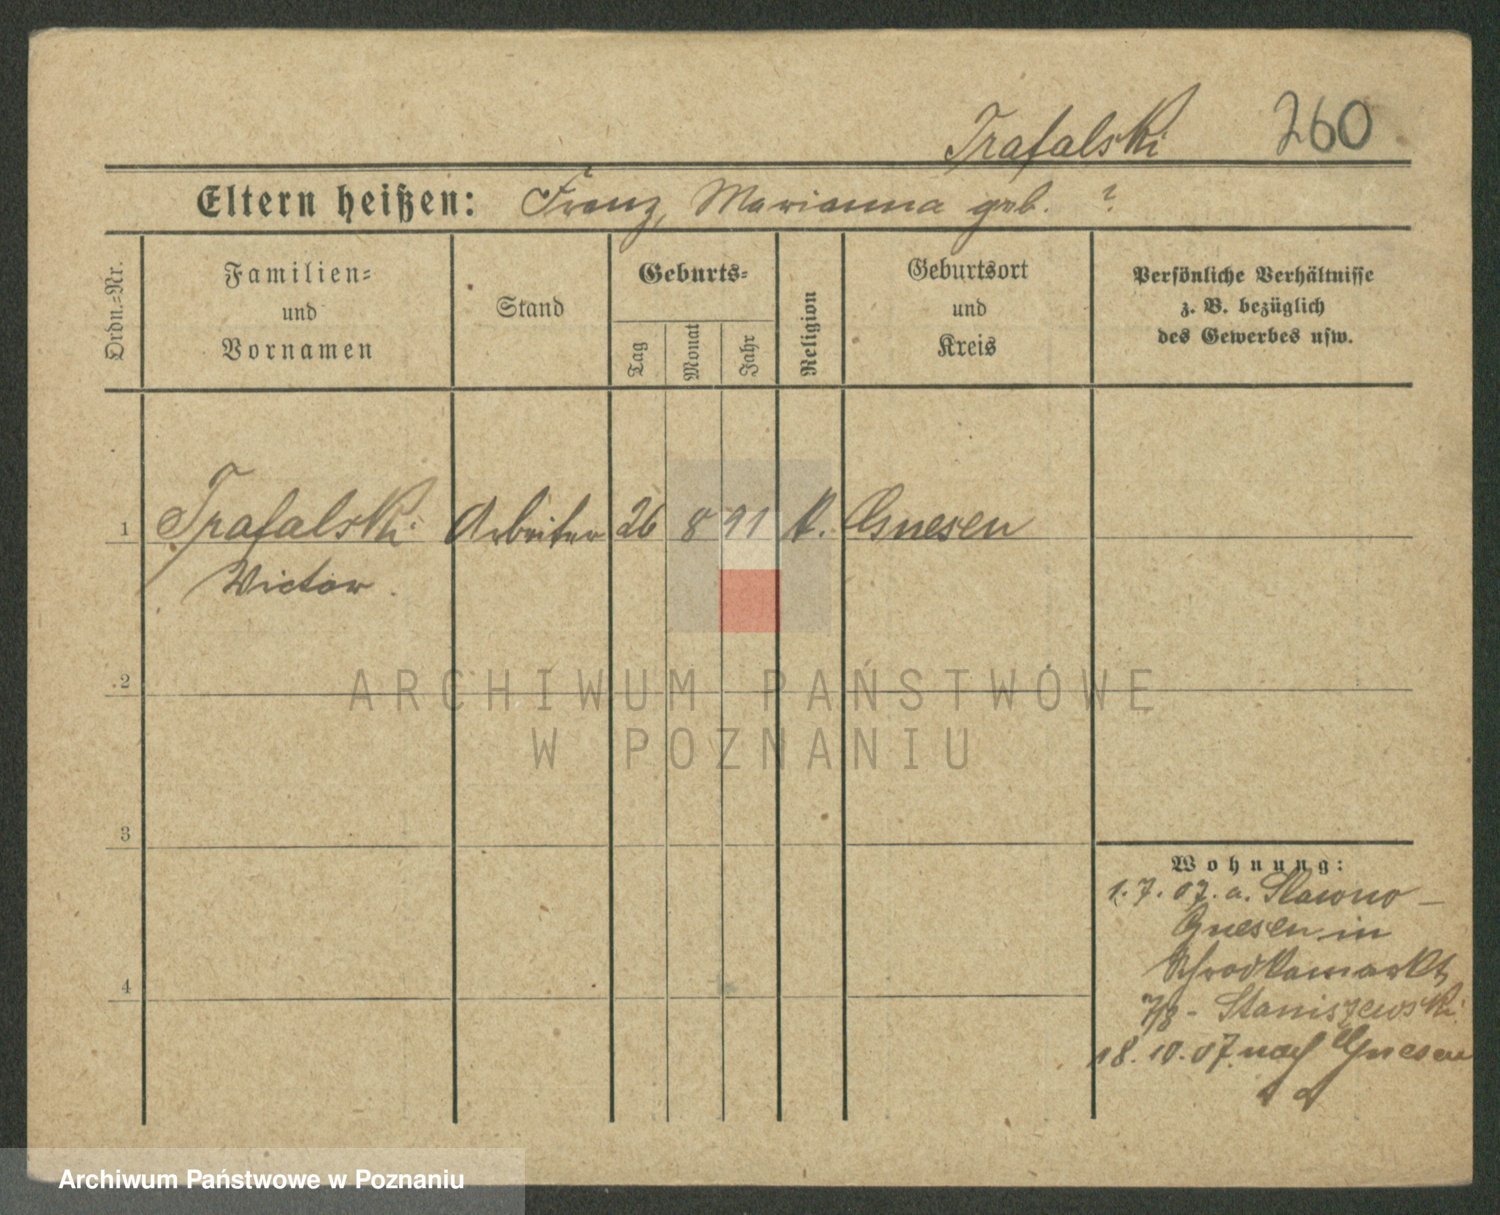 Trafalski 260
Eltern heißen: Franz, Marianna geb. ?
Ordn.-Nr.
Familien- und Vornamen
Stand
Geburts-
Tag
Monat
Jahr
Religion
Geburtsort und Kreis
Persönliche Verhältnisse
z. B. bezüglich
des Gewerbes usw.
1 Trafalski Arbeiter 26 8 91 k. Gnesen
Victor.
2
ARCHIWUM PAŃSTWOWE
W POZNANIU
3
Wohnung:
1.7.07. a. Slawno -
Gnesen in
Schrodkamarkt
4
7/8 - Staniszewski
18.10.07. nach Gnesen
Archiwum Państwowe w Poznaniu